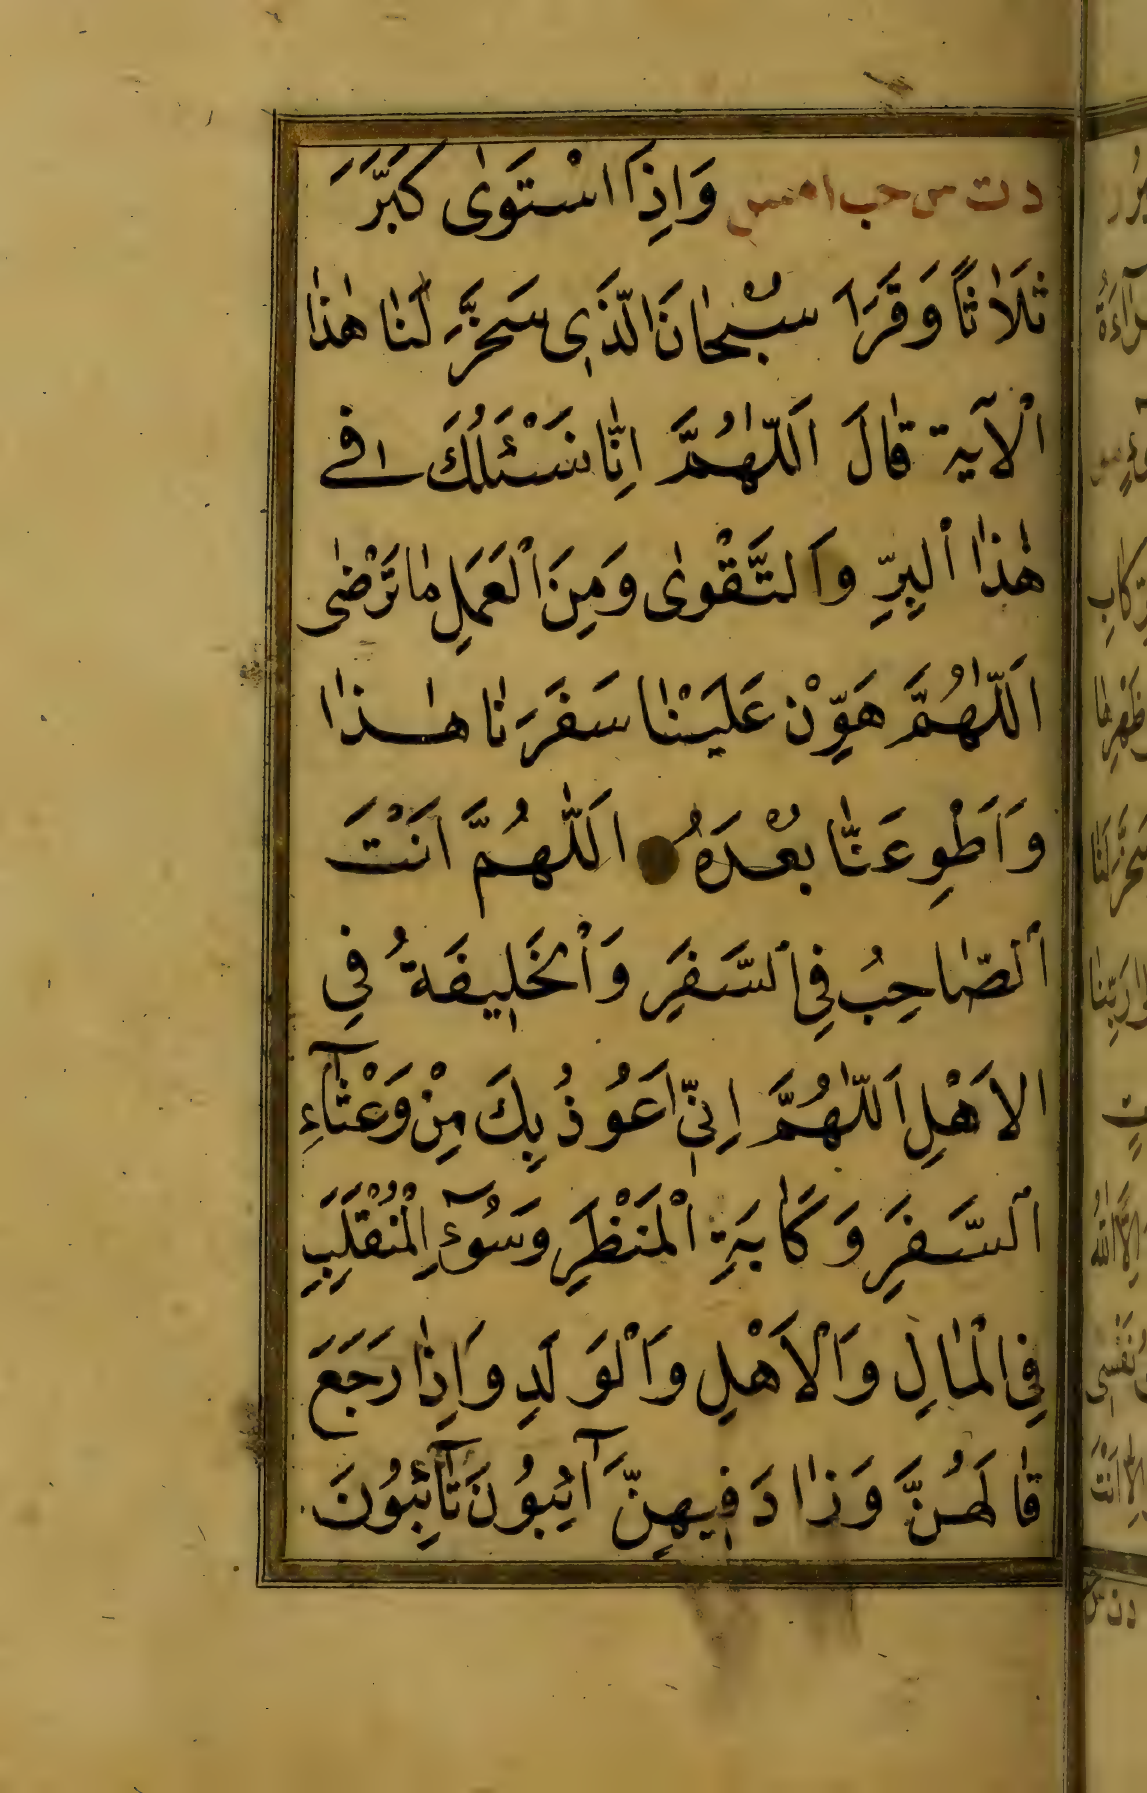 د ت س حب ا مس وَاِذَا اسْتَوٰى كَبَّرَ
ثَلَاثًا وَقَرَاَ سُبْحَانَ الَّذِى سَخَّرَ لَنَا هٰذَا
الْآيَةَ قَالَ اَللّٰهُمَّ اِنَّا نَسْئَلُكَ فِى
هٰذَا الْبِرَّ وَالتَّقْوٰى وَمِنَ الْعَمَلِ مَا تَرْضٰى
اَللّٰهُمَّ هَوِّنْ عَلَيْنَا سَفَرَنَا هٰذَا
وَاَطْوِ عَنَّا بُعْدَهُ اَللّٰهُمَّ اَنْتَ
الصَّاحِبُ فِى السَّفَرِ وَالْخَلِيفَةُ فِى
الْاَهْلِ اَللّٰهُمَّ اِنِّى اَعُوذُ بِكَ مِنْ وَعْثَآءِ
السَّفَرِ وَكَابَةِ الْمَنْظَرِ وَسُوٓءِ الْمُنْقَلَبِ
فِى الْمَالِ وَالْاَهْلِ وَالْوَلَدِ وَاِذَا رَجَعَ
قَالَهُنَّ وَزَادَ فِيهِنَّ آئِبُونَ تَآئِبُونَ